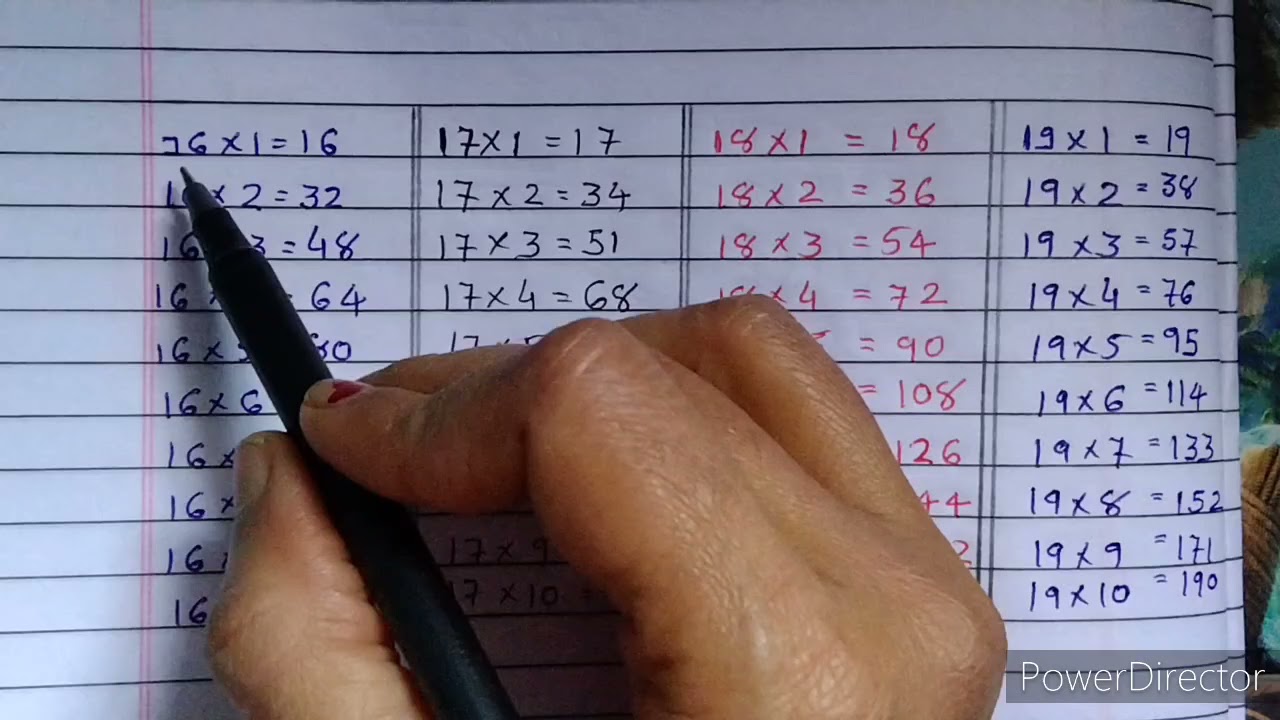 76 × 1 = 16 17 × 1 = 17 18 × 1 = 18 19 × 1 = 19
× 2 = 32 17 × 2 = 34 18 × 2 = 36 19 × 2 = 38
16 3 = 48 17 × 3 = 51 18 × 3 = 54 19 × 3 = 57
16 = 64 17 × 4 = 68 18 × 4 = 72 19 × 4 = 76
16 × 17 = 90 19 × 5 = 95
16 × 6 = 108 19 × 6 = 114
16 × 126 19 × 7 = 133
16 × 19 × 8 = 152
16 17 × 9 19 × 9 = 171
16 17 × 10 = 19 × 10 = 190
PowerDirector